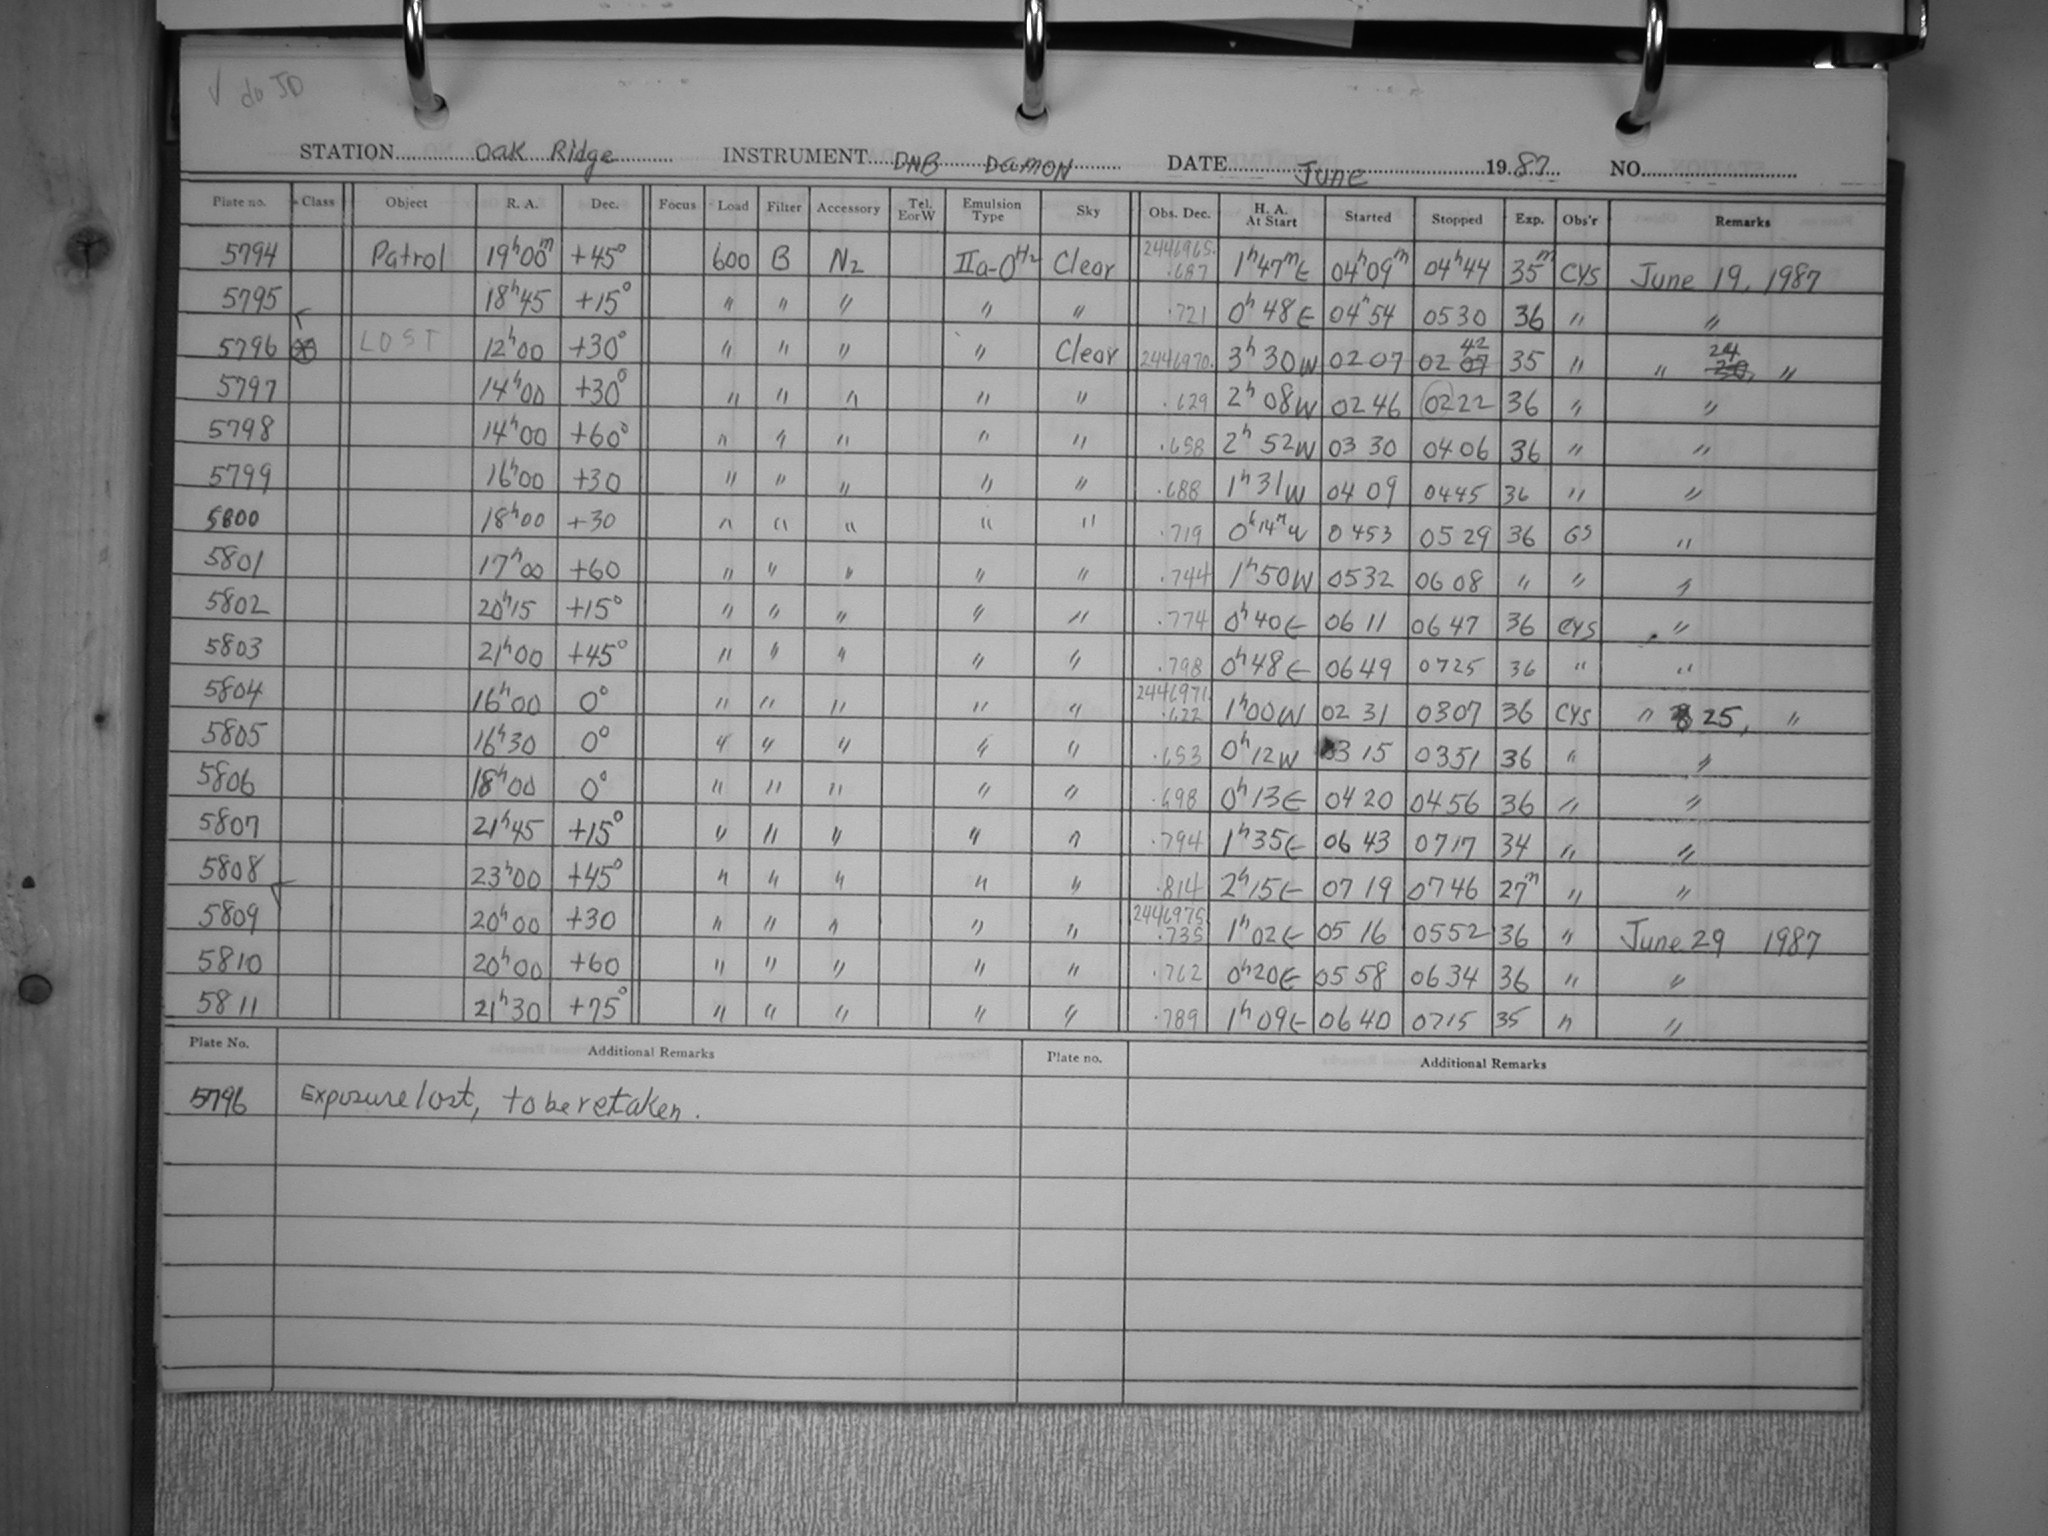 √ do JD
STATION Oak Ridge INSTRUMENT DNB Damon DATE June 1987 NO.
Plate no. Class Object R. A. Dec. Focus Load Filter Accessory Tel. E or W Emulsion Type Sky Obs. Dec. H. A. At Start Started Stopped Exp. Obs'r Remarks
5794 Patrol 19h00m +45° 600 B N2 IIa-O H2 Clear 2446965. .687 1h47mE 04h09m 04h44 35m CYS June 19, 1987
5795 18h45 +15° " " " " " .721 0h48E 04h54 0530 36 " "
5796 LOST 12h00 +30° " " " " Clear 2446970. 3h30W 0207 02 07 42 35 " " 24 "
5797 14h00 +30° " " " " " .629 2h08W 0246 0222 36 " "
5798 14h00 +60° " " " " " .658 2h52W 0330 0406 36 " "
5799 16h00 +30 " " " " " .688 1h31W 0409 0445 36 " "
5800 18h00 +30 " " " " " .719 0h14mW 0453 0529 36 GS "
5801 17h00 +60 " " " " " .744 1h50W 0532 0608 " " "
5802 20h15 +15° " " " " " .774 0h40E 0611 0647 36 CYS "
5803 21h00 +45° " " " " " .798 0h48E 0649 0725 36 " "
5804 16h00 0° " " " " " 2446971. .622 1h00W 0231 0307 36 CYS " 25, "
5805 16h30 0° " " " " " .653 0h12W 0315 0351 36 " "
5806 18h00 0° " " " " " .698 0h13E 0420 0456 36 " "
5807 21h45 +15° " " " " " .794 1h35E 0643 0717 34 " "
5808 23h00 +45° " " " " " .814 2h15E 0719 0746 27m " "
5809 20h00 +30 " " " " " 2446975. .735 1h02E 0516 0552 36 " June 29 1987
5810 20h00 +60 " " " " " .762 0h20E 0558 0634 36 " "
5811 21h30 +75° " " " " " .789 1h09E 0640 0715 35 " "
Plate No. Additional Remarks Plate no. Additional Remarks
5796 Exposure lost, to be retaken.